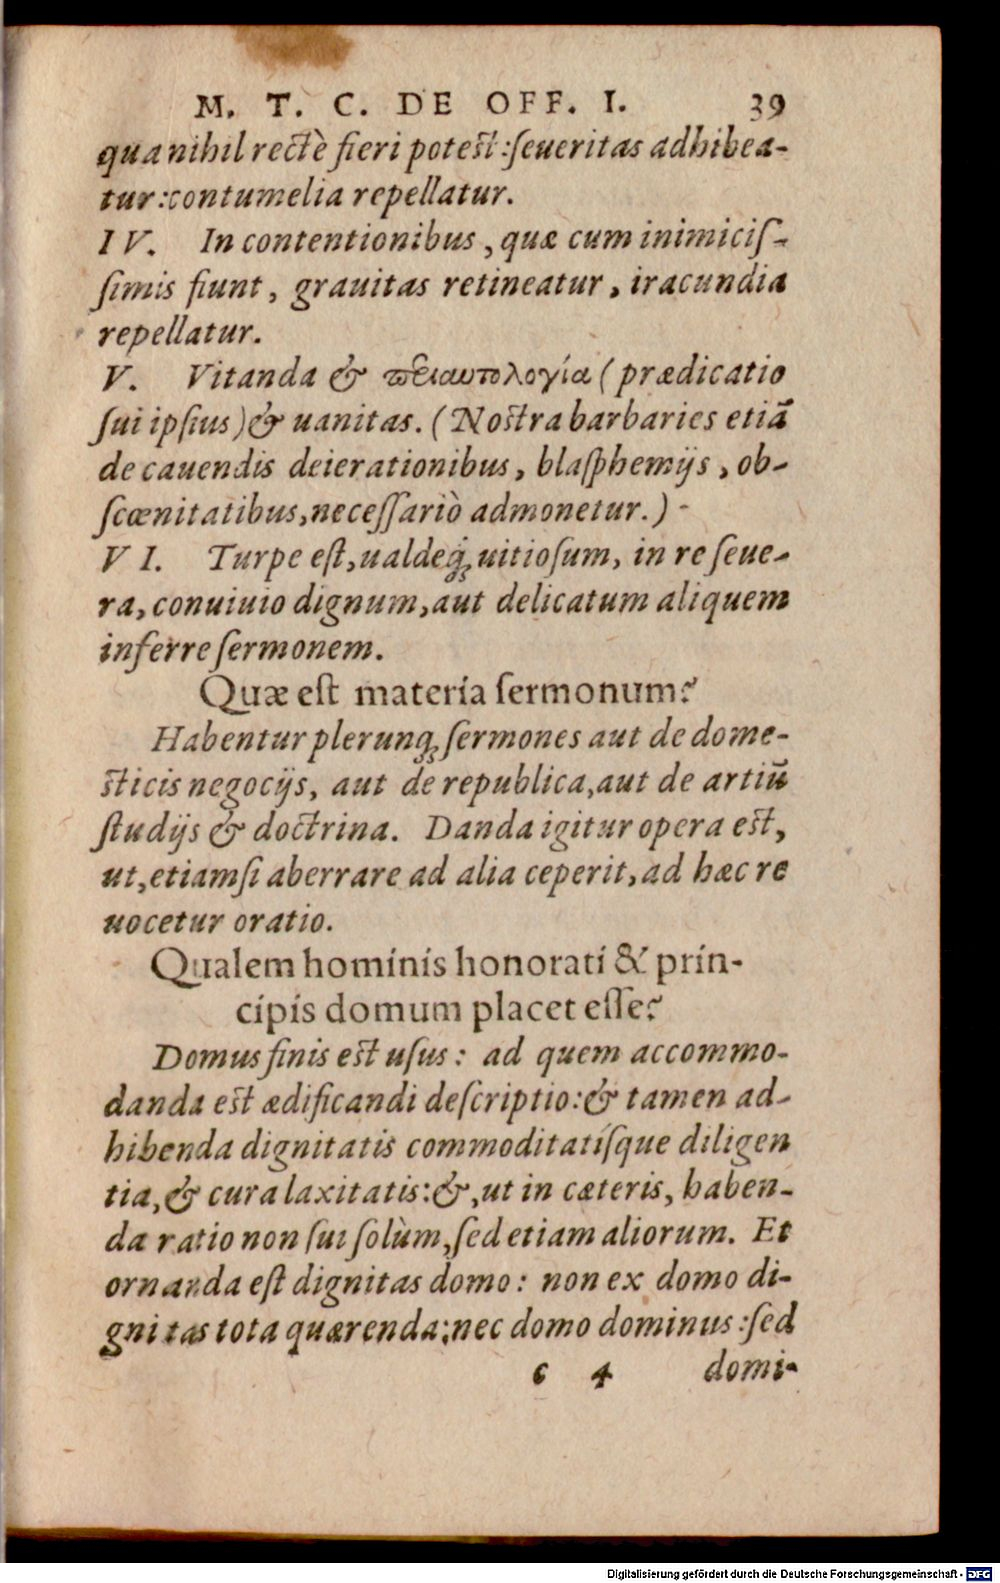 M. T. C. DE OFF. I. 39
qua nihil rectè fieri potest: ſeueritas adhibea-
tur: contumelia repellatur.
IV. In contentionibus, quæ cum inimiciſ-
ſimis fiunt, grauitas retineatur, iracundia
repellatur.
V. Vitanda & περιαυτολογία (prædicatio
ſui ipſius) & uanitas. (Noſtra barbaries etiā
de cauendis deierationibus, blaſphemijs, ob-
ſcœnitatibus, neceſſariò admonetur.)
VI. Turpe eſt, ualdeq́; uitioſum, in re ſeue-
ra, conuiuio dignum, aut delicatum aliquem
inferre ſermonem.
Quæ eſt materia ſermonum?
Habentur plerunq; ſermones aut de dome-
ſticis negocijs, aut de republica, aut de artiū
ſtudijs & doctrina. Danda igitur opera eſt,
ut, etiamſi aberrare ad alia ceperit, ad hæc re
uocetur oratio.
Qualem hominis honorati & prin-
cipis domum placet eſſe?
Domus finis eſt uſus: ad quem accommo-
danda eſt ædificandi deſcriptio: & tamen ad-
hibenda dignitatis commoditatíſque diligen
tia, & cura laxitatis: &, ut in cæteris, haben-
da ratio non ſui ſolùm, ſed etiam aliorum. Et
ornanda eſt dignitas domo: non ex domo di-
gnitas tota quærenda: nec domo dominus: ſed
c 4 domi-
Digitalisierung gefördert durch die Deutsche Forschungsgemeinschaft - DFG